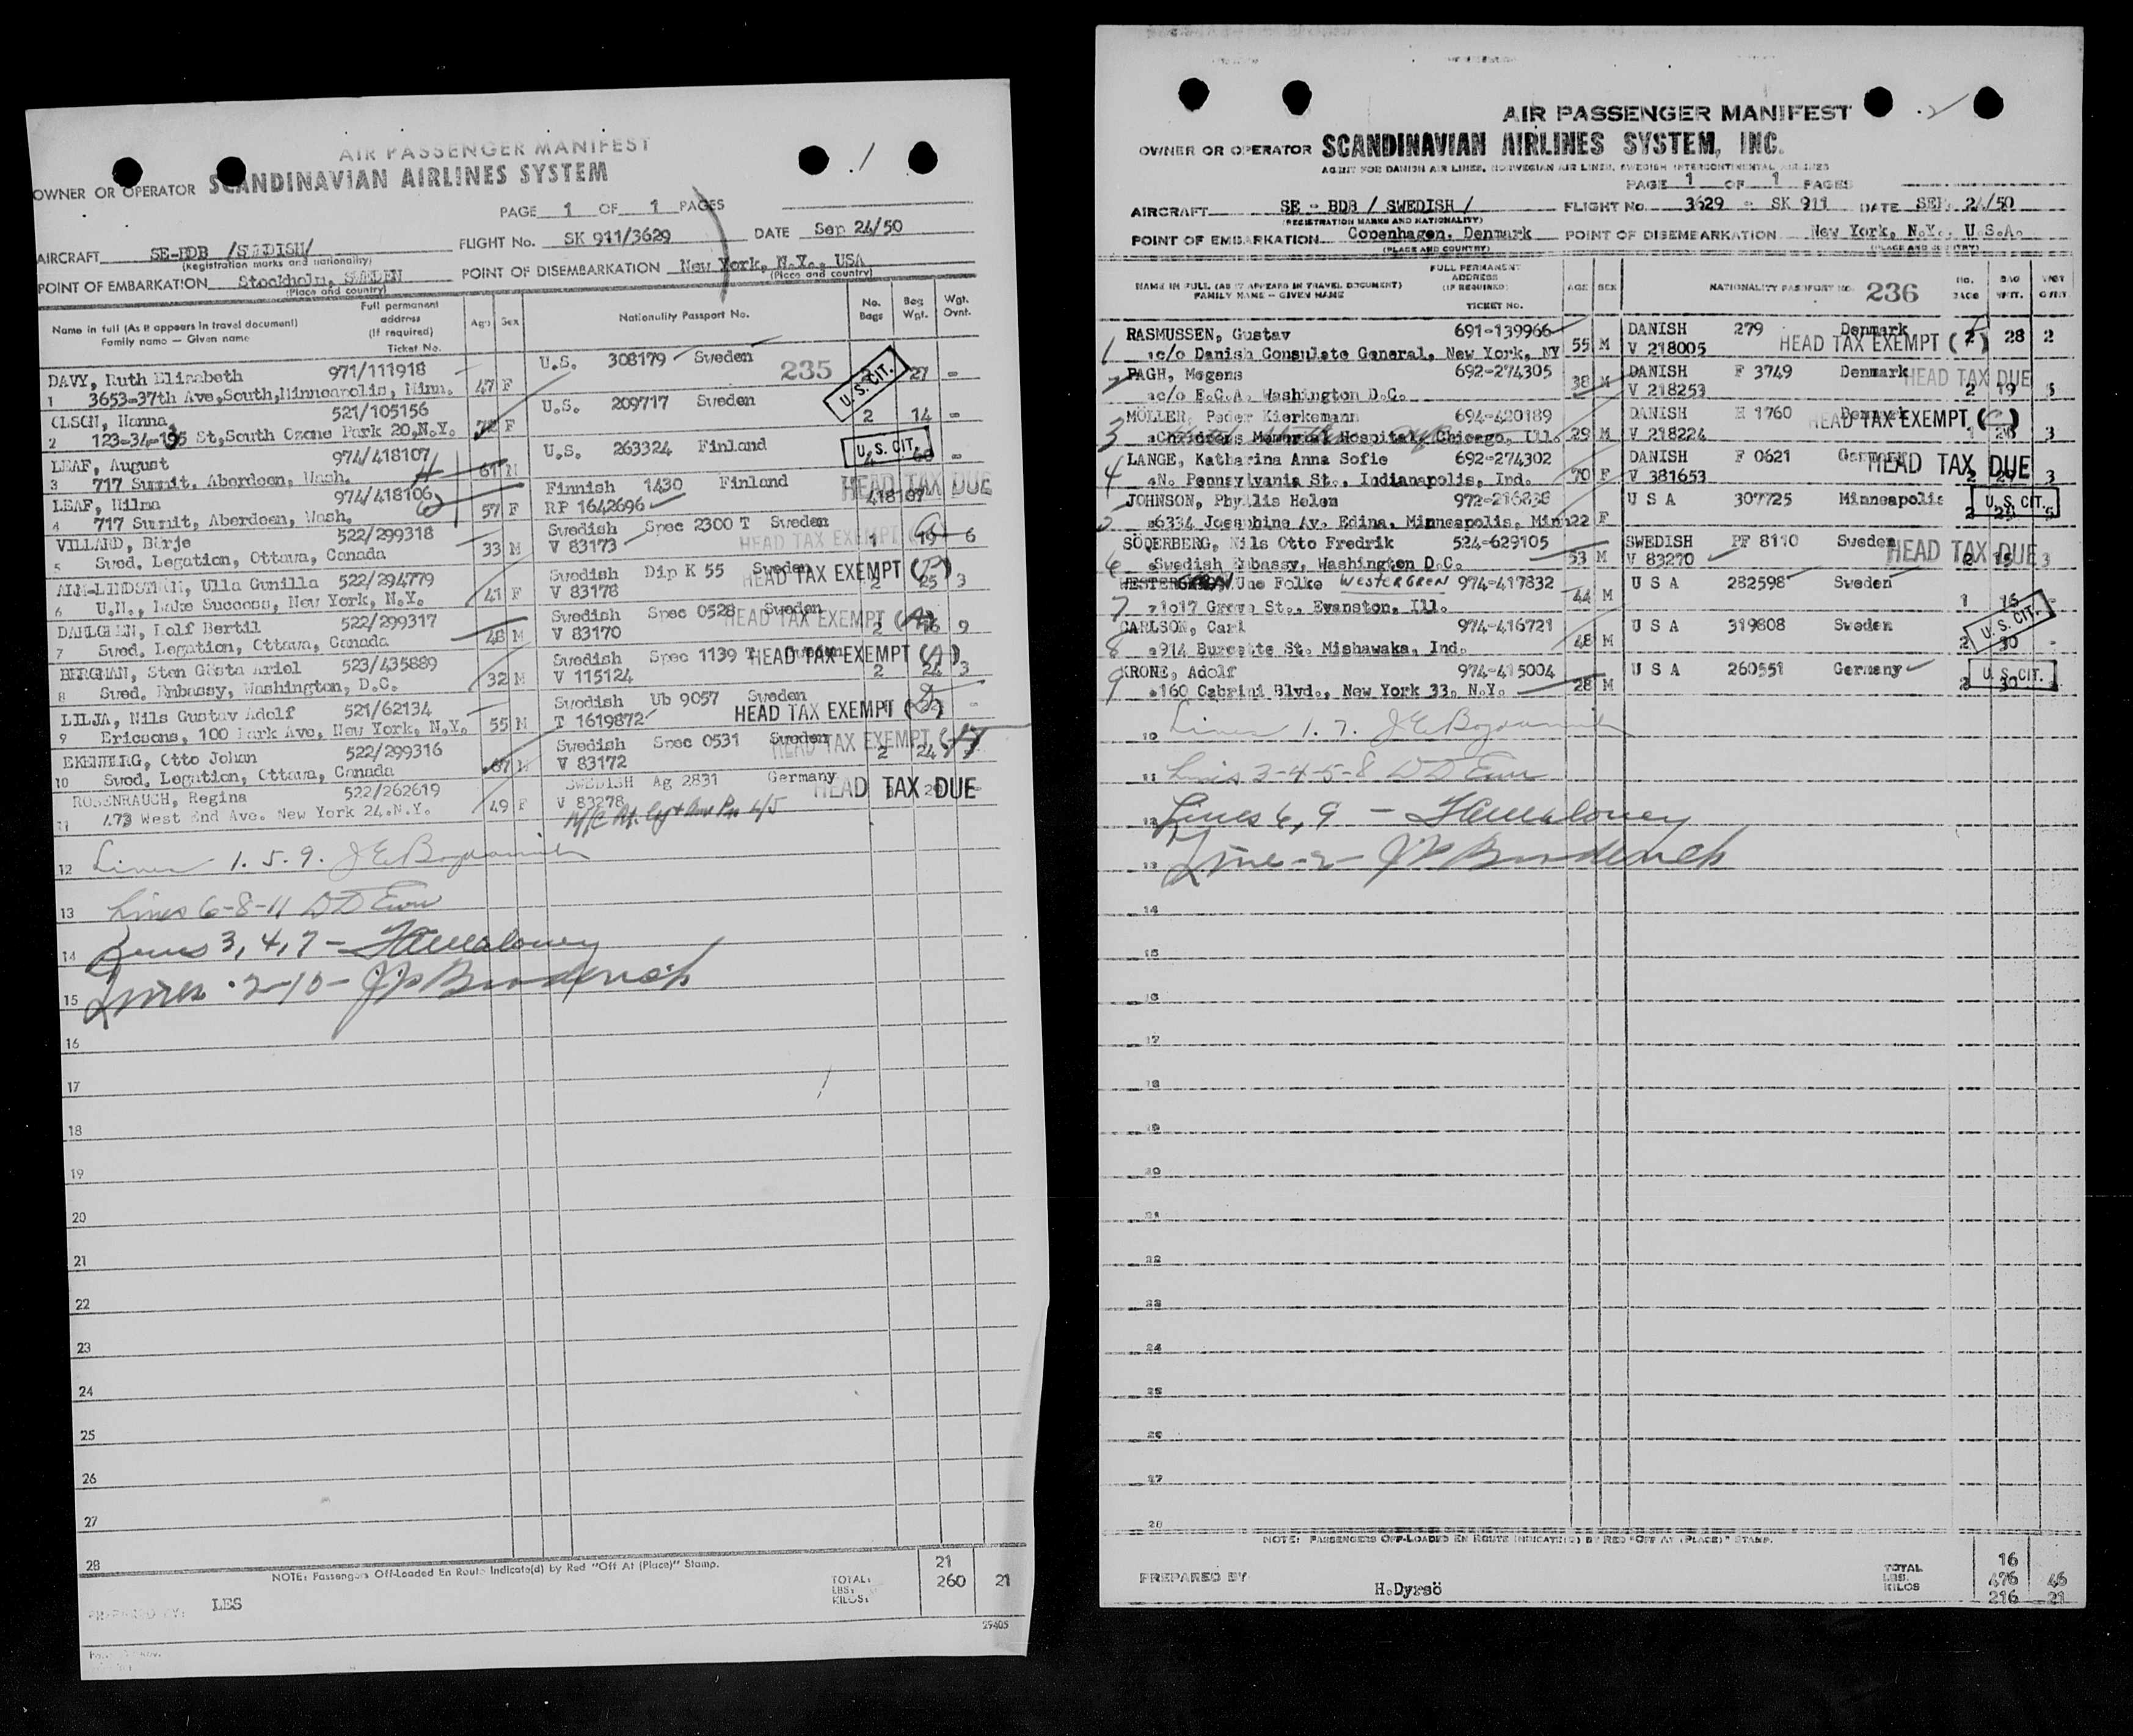 AIR PASSENGER MANIFEST
OWNER OR OPERATOR SCANDINAVIAN AIRLINES SYSTEM
PAGE 1 OF 1 PAGES
AIRCRAFT SE-BDB /SWEDISH/ FLIGHT No. SK 911/3629 DATE Sep 24/50
(Registration marks and nationality)
POINT OF EMBARKATION Stockholm, SWEDEN POINT OF DISEMBARKATION New York, N.Y., USA
(Place and country) (Place and country)
Name in full (As it appears in travel document) Family name — Given name Full permanent address (If required) Ticket No. Age Sex Nationality Passport No. No. Bags Bag Wgt. Wgt. Ovnt.
235
DAVY, Ruth Elizabeth 971/111918 47 F U.S. 308179 Sweden 27 -
1 3653-37th Ave,South,Minneapolis, Minn. U.S. CIT.
OLSON, Hanna, 521/105156 F U.S. 209717 Sweden 2 14 -
2 123-34-195 St,South Ozone Park 20,N.Y.
LEAF, August 974/418107 61 M U.S. 263324 Finland U.S. CIT.
3 717 Summit, Aberdeen, Wash.
LEAF, Hilma 974/418106 57 F Finnish 1430 Finland HEAD TAX DUE
4 717 Summit, Aberdeen, Wash. RP 1642696 418107
VILLARD, Börje 522/299318 33 M Swedish Spec 2300 T Sweden HEAD TAX EXEMPT
5 Swed. Legation, Ottawa, Canada V 83173 1 19 6
ALM-LINDSTRÖM, Ulla Gunilla 522/294779 41 F Swedish Dip K 55 Sweden HEAD TAX EXEMPT
6 U.N., Lake Success, New York, N.Y. V 83178 2 25 3
DAHLGREN, Rolf Bertil 522/299317 48 M Swedish Spec 0528 Sweden HEAD TAX EXEMPT
7 Swed. Legation, Ottawa, Canada V 83170 2 16 9
BERGMAN, Sten Gösta Ariel 523/435889 32 M Swedish Spec 1139 T HEAD TAX EXEMPT
8 Swed. Embassy, Washington, D.C. V 115124 2 24 3
LILJA, Nils Gustav Adolf 521/62134 55 M Swedish Ub 9057 Sweden HEAD TAX EXEMPT
9 Ericsons, 100 Park Ave, New York, N.Y. T 1619872
EKENBERG, Otto Johan 522/299316 67 M Swedish Spec 0531 Sweden HEAD TAX EXEMPT
10 Swed. Legation, Ottawa, Canada V 83172 2 24
ROSENRAUCH, Regina 522/262619 49 F SWEDISH Ag 2831 Germany HEAD TAX DUE
11 473 West End Ave. New York 24.N.Y. V 83278
12 Lines 1. 5. 9.
13 Lines 6-8-11
14 Lines 3, 4, 7 -
15 Lines 2-10 -
16
17
18
19
20
21
22
23
24
25
26
27
28
NOTE: Passengers Off-Loaded En Route Indicate(d) by Red "Off At (Place)" Stamp.
21
TOTAL: LBS: KILOS: 260 21
PREPARED BY: LES
29405
AIR PASSENGER MANIFEST 2
OWNER OR OPERATOR SCANDINAVIAN AIRLINES SYSTEM, INC.
AGENT FOR DANISH AIR LINES, NORWEGIAN AIR LINES, SWEDISH INTERCONTINENTAL AIRLINES
PAGE 1 OF 1 PAGES
AIRCRAFT SE - BDB / SWEDISH / FLIGHT No. 3629 - SK 911 DATE SEP. 24/50
(REGISTRATION MARKS AND NATIONALITY)
POINT OF EMBARKATION Copenhagen, Denmark POINT OF DISEMBARKATION New York, N.Y., U.S.A.
(PLACE AND COUNTRY) (PLACE AND COUNTRY)
NAME IN FULL (AS IT APPEARS IN TRAVEL DOCUMENT) FAMILY NAME — GIVEN NAME FULL PERMANENT ADDRESS (IF REQUIRED) TICKET NO. AGE SEX NATIONALITY PASSPORT NO. 236 NO. BAGS BAG WGT. WGT OVWT
RASMUSSEN, Gustav 691-139966 55 M DANISH 279 Denmark 2 28 2
1 c/o Danish Consulate General, New York, NY V 218005 HEAD TAX EXEMPT
PAGH, Mogens 692-274305 38 M DANISH F 3749 Denmark HEAD TAX DUE
2 c/o E.C.A. Washington D.C. V 218253 2 19 5
MÖLLER, Peder Kierkemann 694-420189 29 M DANISH H 1760 Denmark HEAD TAX EXEMPT
3 Childrens Memorial Hospital, Chicago, Ill. V 218224 3
LANGE, Katharina Anna Sofie 692-274302 70 F DANISH F 0621 Germany HEAD TAX DUE
4 N. Pennsylvania St., Indianapolis, Ind. V 381653 3
JOHNSON, Phyllis Helen 972-216838 22 F U S A 307725 Minneapolis U.S. CIT.
5 6334 Josephine Av. Edina, Minneapolis, Minn
SÖDERBERG, Nils Otto Fredrik 524-629105 53 M SWEDISH PF 8110 Sweden HEAD TAX DUE
6 Swedish Embassy, Washington D.C. V 83270 2 15 3
Une Folke WESTERGREN 974-417832 44 M U S A 282598 Sweden
7 1017 Grove St., Evanston, Ill. 1 16 -
CARLSON, Carl 974-416721 48 M U S A 319808 Sweden U.S. CIT.
8 914 Burdette St. Mishawaka, Ind. 2 30 -
KRONE, Adolf 974-415004 28 M U S A 260551 Germany U.S. CIT.
9 160 Cabrini Blvd., New York 33, N.Y.
10 Lines 1. 7.
11 Lines 3-4-5-8
12 Lines 6, 9 -
13 Line -2-
14
15
16
17
18
19
20
21
22
23
24
25
26
27
28
NOTE: PASSENGERS OFF-LOADED EN ROUTE INDICATE(D) BY RED "OFF AT (PLACE)" STAMP.
TOTAL 16
PREPARED BY H.Dyrsö LBS. 476 46
KILOS 216 21